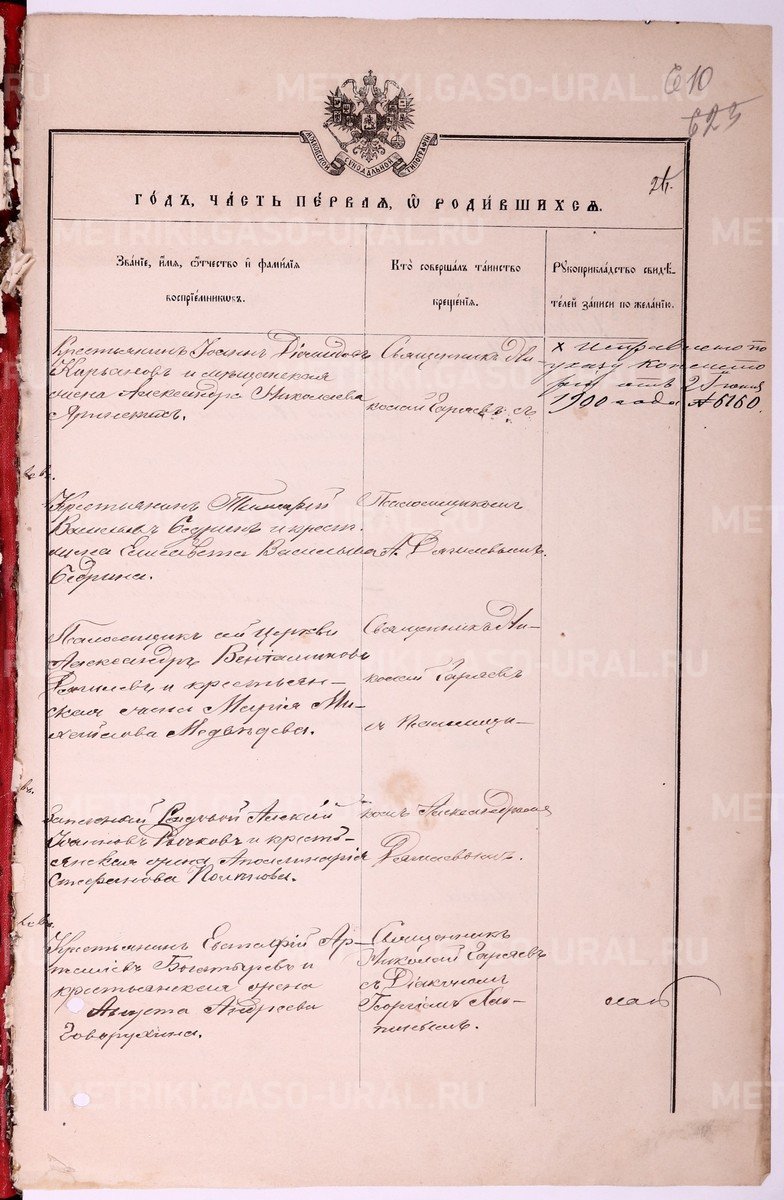 610
623
МОСКОВСКОЙ СѴНОДАЛЬНОЙ ТИПОГРАФІИ
24.
ГОДЪ, ЧАСТЬ ПЕРВАЯ, Ѡ РОДИВШИХСЯ.
Званіе, имя, отчество и фамилія
воспріемниковъ.
Кто совершалъ таинство
крещенія.
Рукоприкладство свидѣ-
телей записи по желанію.
Крестьянинъ Іоаннъ
и мѣщанская
жена Александра Николаева
Священникъ Ни-
колай Гаряевъ съ
х Исправлено по
указу Консисто
ріи отъ 2 Іюня
1900 года № 6160.
Крестьянинъ Тимофей
Васильевъ и крест.
жена Елисавета Васильева
Псаломщикомъ
А. Дягилевымъ.
Псаломщикъ сей церкви
Александръ Веніаминовъ
Дягилевъ и крестьян-
ская жена Марія Ми-
хайлова Медвѣдева.
Священникъ Ни-
колай Гаряевъ
съ Псаломщи-
Запасный Рядовой Алексій
Іоанновъ Рычковъ и кресть-
янская жена Аполлинарія
Стефанова
комъ Александромъ
Дягилевымъ.
Крестьянинъ Евстафій Ар-
теміевъ Богатыревъ и
крестьянская жена
Августа Андреева
Говорухина.
Священникъ
Николай Гаряевъ
съ Діакономъ
Георгіемъ Ла-
METRIKI.GASO-URAL.RU